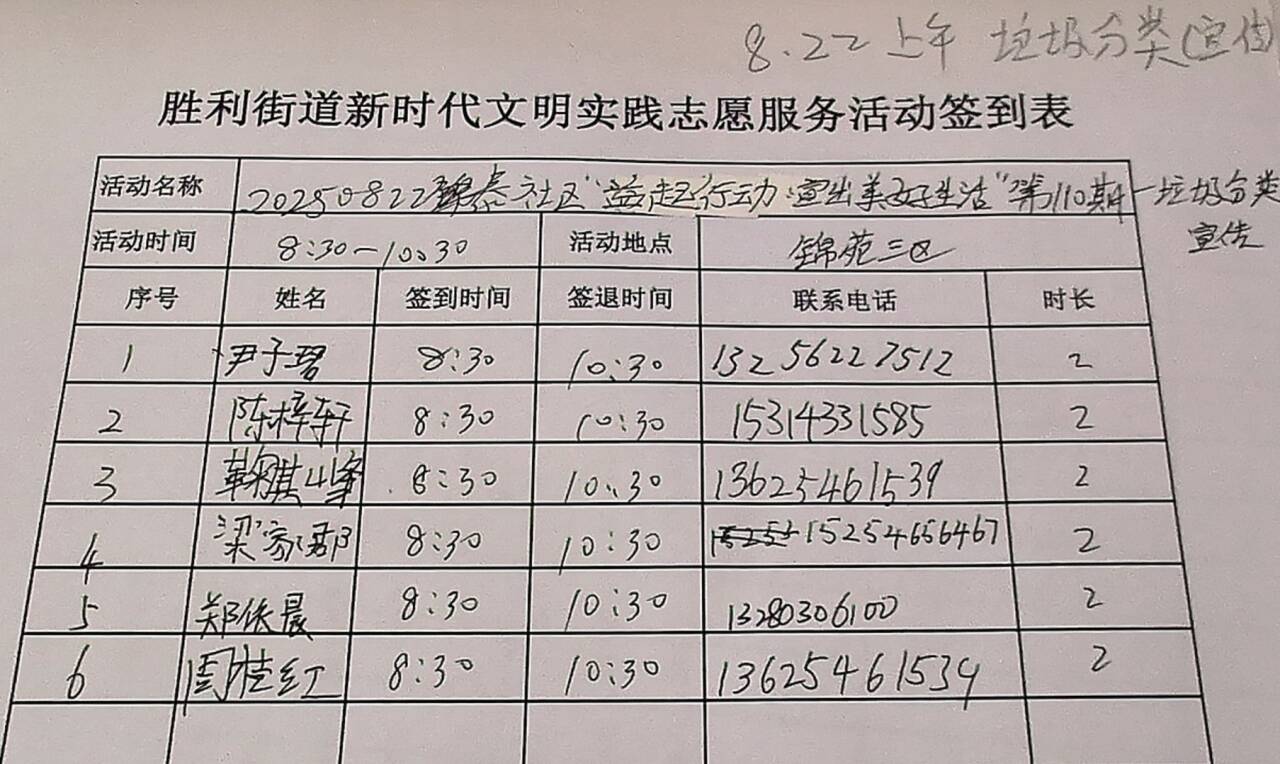 8.22 上午 垃圾分类(宣传
胜利街道新时代文明实践志愿服务活动签到表
活动名称 20250822锦泰社区"益起行动·宣出美好生活"第110期-垃圾分类
宣传
活动时间 8:30-10:30 活动地点 锦苑三区
序号 姓名 签到时间 签退时间 联系电话 时长
1 尹子珺 8:30 10:30 13256227512 2
2 陈梓轩 8:30 10:30 15314331585 2
3 鞠淇峰 8:30 10:30 13625461539 2
4 梁家郡 8:30 10:30 15254656467 2
5 郑依晨 8:30 10:30 13280306100 2
6 周桂红 8:30 10:30 13625461539 2